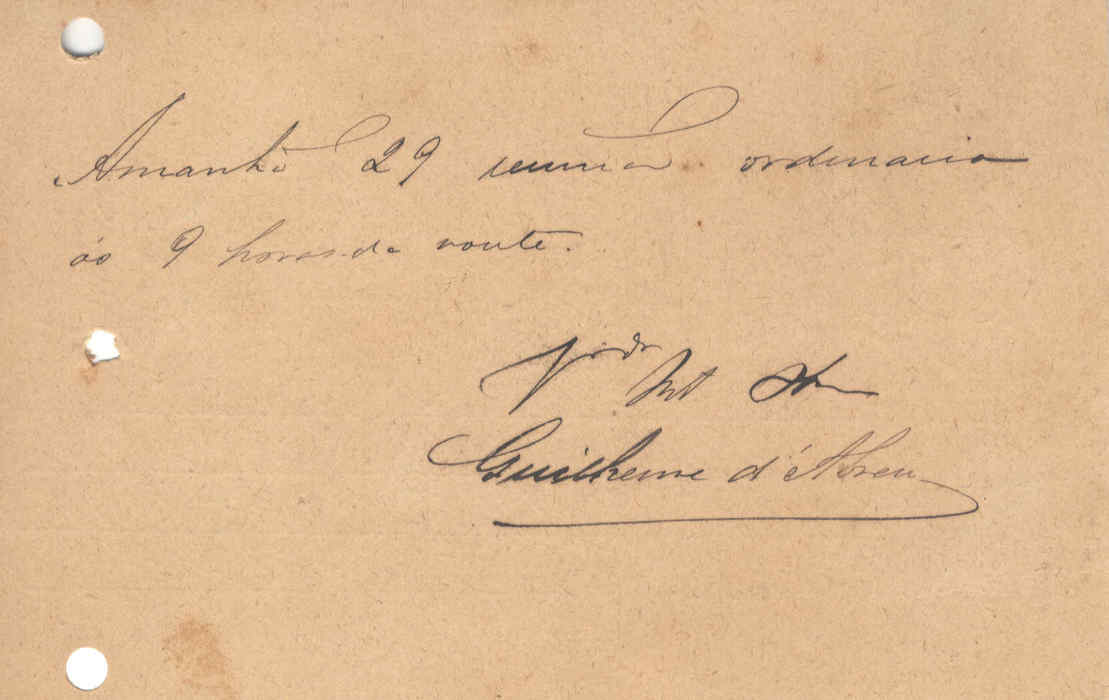 Amanhã 29 reunião ordinaria
ás 9 horas da noute.
Guilherme d'Abreu